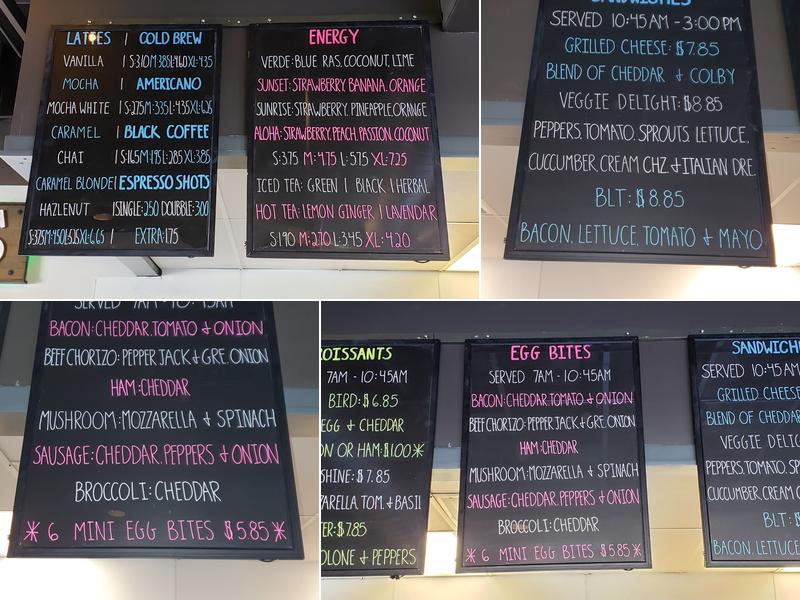 LATTES | COLD BREW
VANILLA | S:3.10 M:3.85 L:4.60 XL:4.35
MOCHA | AMERICANO
MOCHA WHITE | S:2.75 M:3.35 L:4.35 XL:6.25
CARAMEL | BLACK COFFEE
CHAI | S:1.65 M:1.95 L:2.85 XL:3.85
CARAMEL BLONDE | ESPRESSO SHOTS
HAZLENUT | SINGLE: 2.50 DOUBBLE: 3.00
S:3.75 M:4.50 L:5.25 XL:6.65 | EXTRA: 1.75
ENERGY
VERDE: BLUE RAS, COCONUT, LIME
SUNSET: STRAWBERRY, BANANA, ORANGE
SUNRISE: STRAWBERRY, PINEAPPLE, ORANGE
ALOHA: STRAWBERRY, PEACH, PASSION, COCONUT
S:3.75 M:4.75 L:5.75 XL:7.25
ICED TEA: GREEN | BLACK | HERBAL
HOT TEA: LEMON GINGER | LAVENDAR
S:1.90 M:2.70 L:3.45 XL:4.20
SANDWICHES
SERVED 10:45AM - 3:00PM
GRILLED CHEESE: $7.85
BLEND OF CHEDDAR & COLBY
VEGGIE DELIGHT: $8.85
PEPPERS, TOMATO, SPROUTS, LETTUCE,
CUCCUMBER, CREAM CHZ & ITALIAN DRE.
BLT: $8.85
BACON, LETTUCE, TOMATO & MAYO
SERVED 7AM - 10:45AM
BACON: CHEDDAR, TOMATO & ONION
BEEF CHORIZO: PEPPER JACK & GRE. ONION
HAM: CHEDDAR
MUSHROOM: MOZZARELLA & SPINACH
SAUSAGE: CHEDDAR, PEPPERS & ONION
BROCCOLI: CHEDDAR
* 6 MINI EGG BITES $5.85 *
OISSANTS
7AM - 10:45AM
BIRD: $6.85
EGG & CHEDDAR
ON OR HAM: $1.00 *
SHINE: $7.85
ZARELLA, TOM. & BASIL
ER: $7.85
OLONE & PEPPERS
EGG BITES
SERVED 7AM - 10:45AM
BACON: CHEDDAR, TOMATO & ONION
BEEF CHORIZO: PEPPER JACK & GRE. ONION
HAM: CHEDDAR
MUSHROOM: MOZZARELLA & SPINACH
SAUSAGE: CHEDDAR, PEPPERS & ONION
BROCCOLI: CHEDDAR
* 6 MINI EGG BITES $5.85 *
SANDWICH
SERVED 10:45 AM
GRILLED CHEESE
BLEND OF CHEDDAR
VEGGIE DELIG
PEPPERS, TOMATO, SP
CUCCUMBER, CREAM C
BLT: $
BACON, LETTUCE